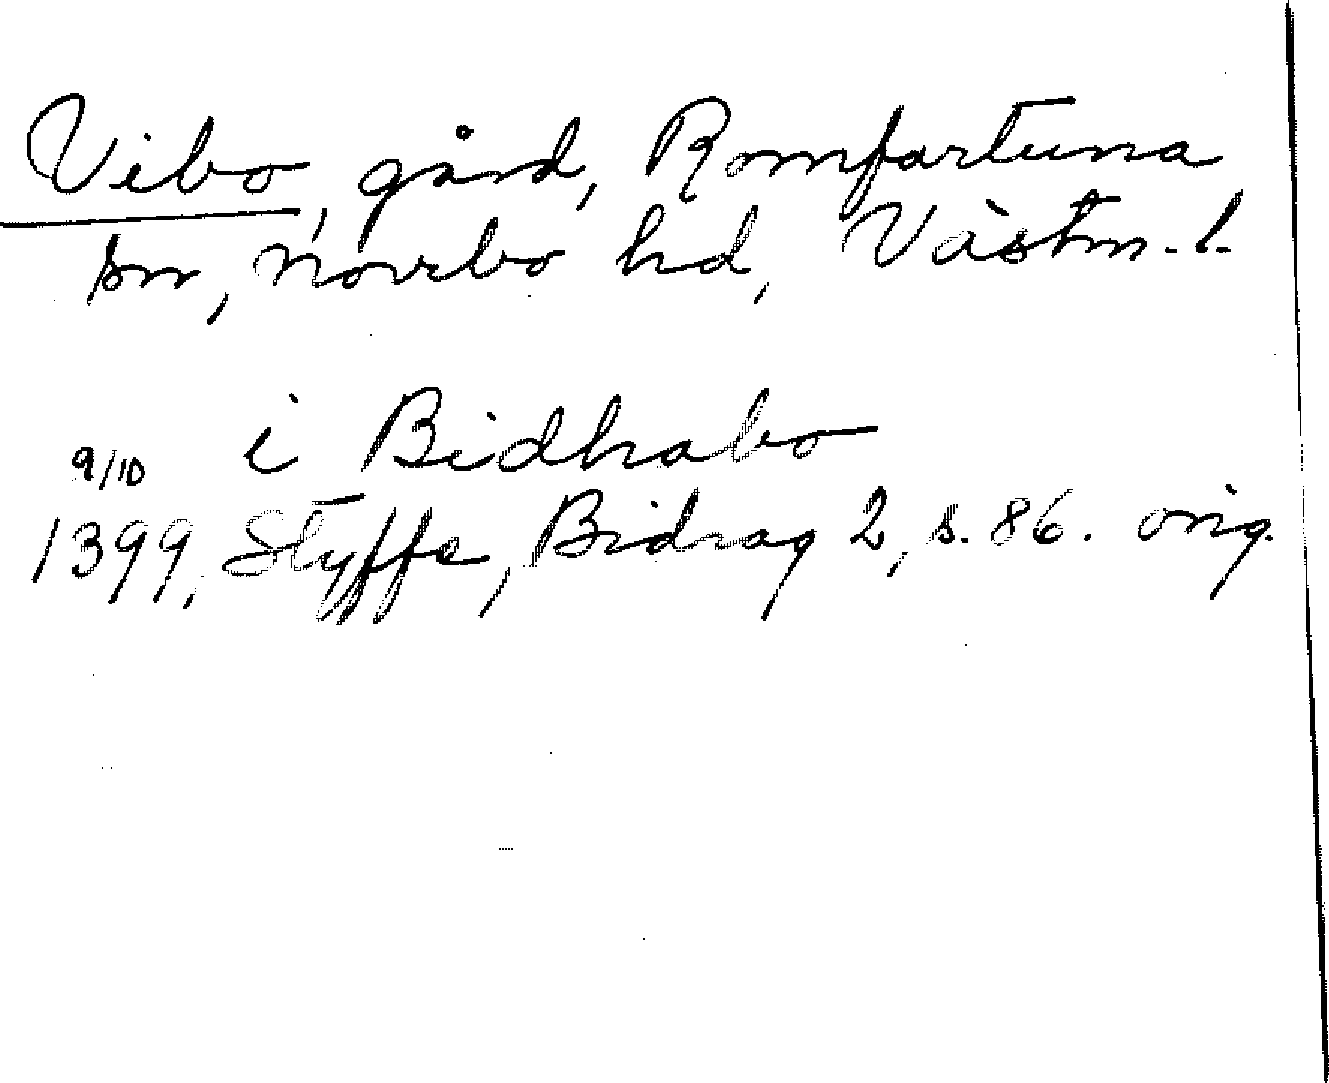 Vibo, gård, Romfartuna
sn, Norrbo hd, Västm. l.
i Bidhabo
9/10
1399, Styffe, Bidrag 2, s. 86. orig.